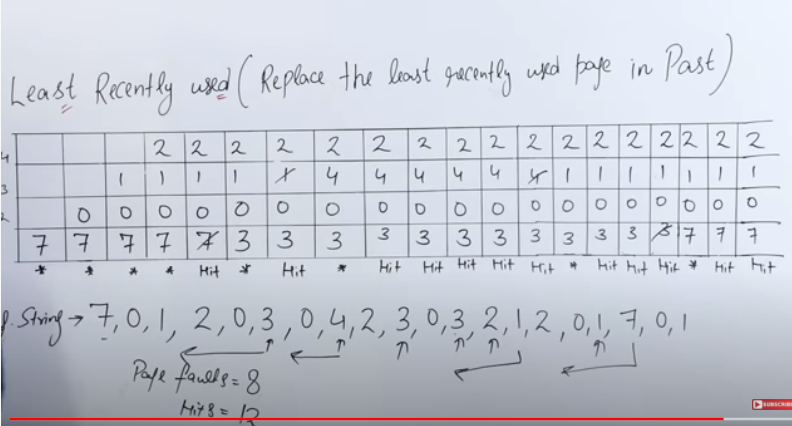 Least Recently used (Replace the least recently used page in Past)
4 2 2 2 2 2 2 2 2 2 2 2 2 2 2 2 2 2
3 1 1 1 1 1 4 4 4 4 4 4 1 1 1 1 1 1 1
2 0 0 0 0 0 0 0 0 0 0 0 0 0 0 0 0 0 0 0
7 7 7 7 7 3 3 3 3 3 3 3 3 3 3 3 3 7 7 7
* * * * Hit * Hit * Hit Hit Hit Hit Hit * Hit Hit Hit * Hit Hit
String → 7, 0, 1, 2, 0, 3, 0, 4, 2, 3, 0, 3, 2, 1, 2, 0, 1, 7, 0, 1
Page faults = 8
Hits = 12
SUBSCRIBE